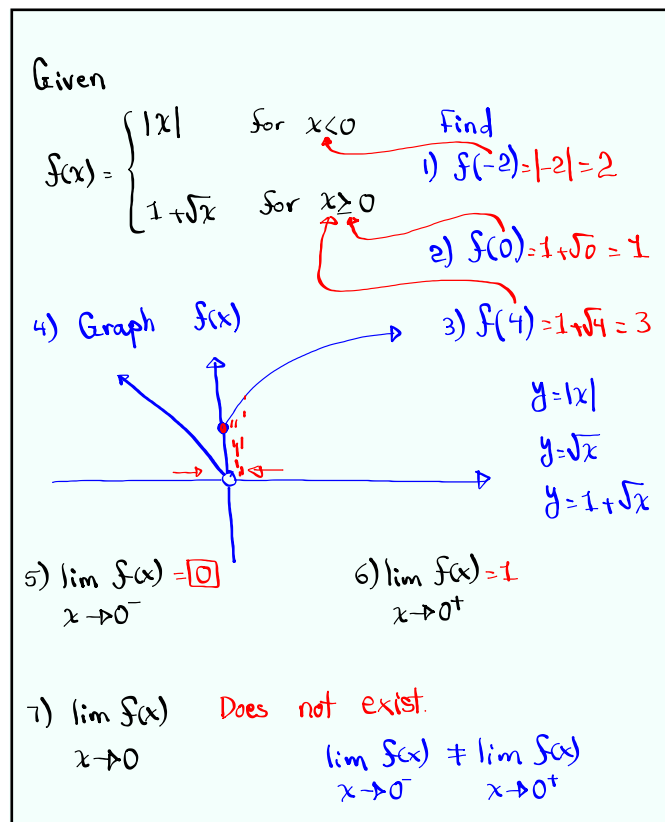 Given
f(x) = { |x| for x<0
1+√x for x≥0
Find
1) f(-2)=|-2|=2
2) f(0)=1+√0 = 1
3) f(4)=1+√4=3
4) Graph f(x)
y=|x|
y=√x
y=1+√x
5) lim f(x) = 0
x→0⁻
6) lim f(x)=1
x→0⁺
7) lim f(x) Does not exist.
x→0
lim f(x) ≠ lim f(x)
x→0⁻ x→0⁺